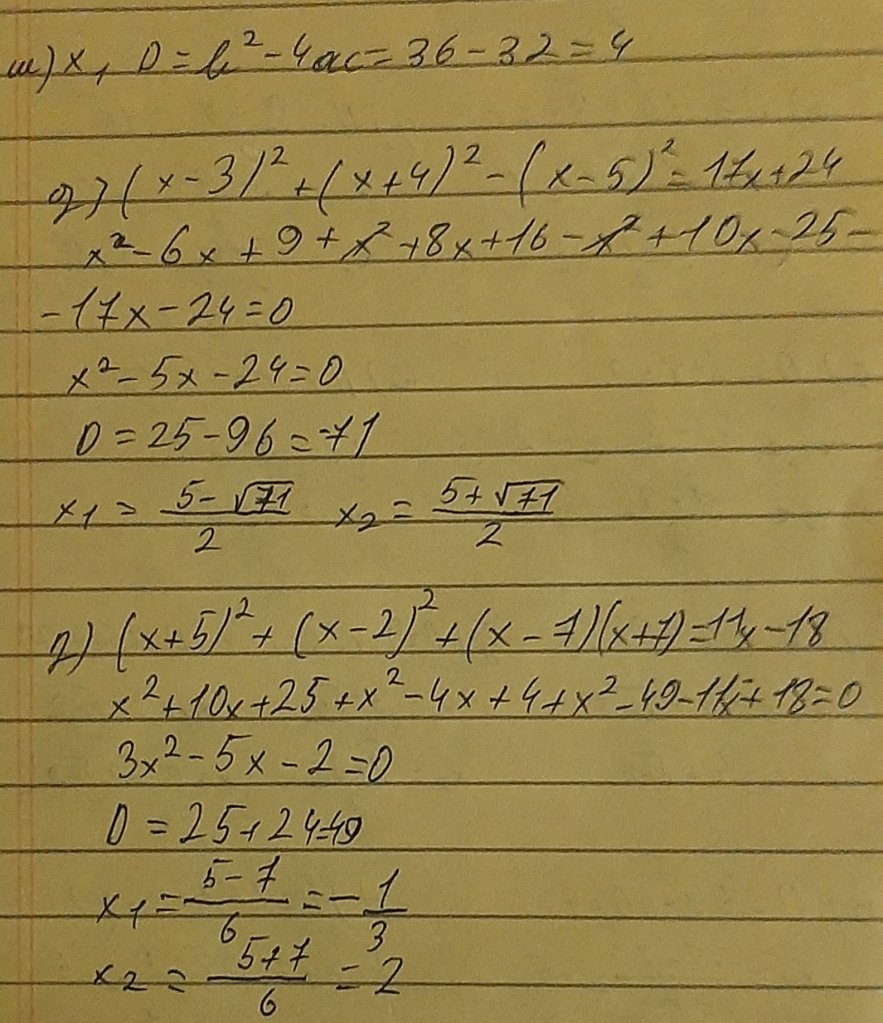 ш) x, D = b² - 4ac = 36 - 32 = 4
д) (x - 3)² + (x + 4)² - (x - 5)² = 17x + 24
x² - 6x + 9 + x² + 8x + 16 - x² + 10x - 25 -
- 17x - 24 = 0
x² - 5x - 24 = 0
D = 25 - 96 = -71
x₁ = (5 - √71)/2 x₂ = (5 + √71)/2
д) (x + 5)² + (x - 2)² + (x - 7)(x + 7) = 11x - 18
x² + 10x + 25 + x² - 4x + 4 + x² - 49 - 11x + 18 = 0
3x² - 5x - 2 = 0
D = 25 + 24 = 49
x₁ = (5 - 7)/6 = -1/3
x₂ = (5 + 7)/6 = 2